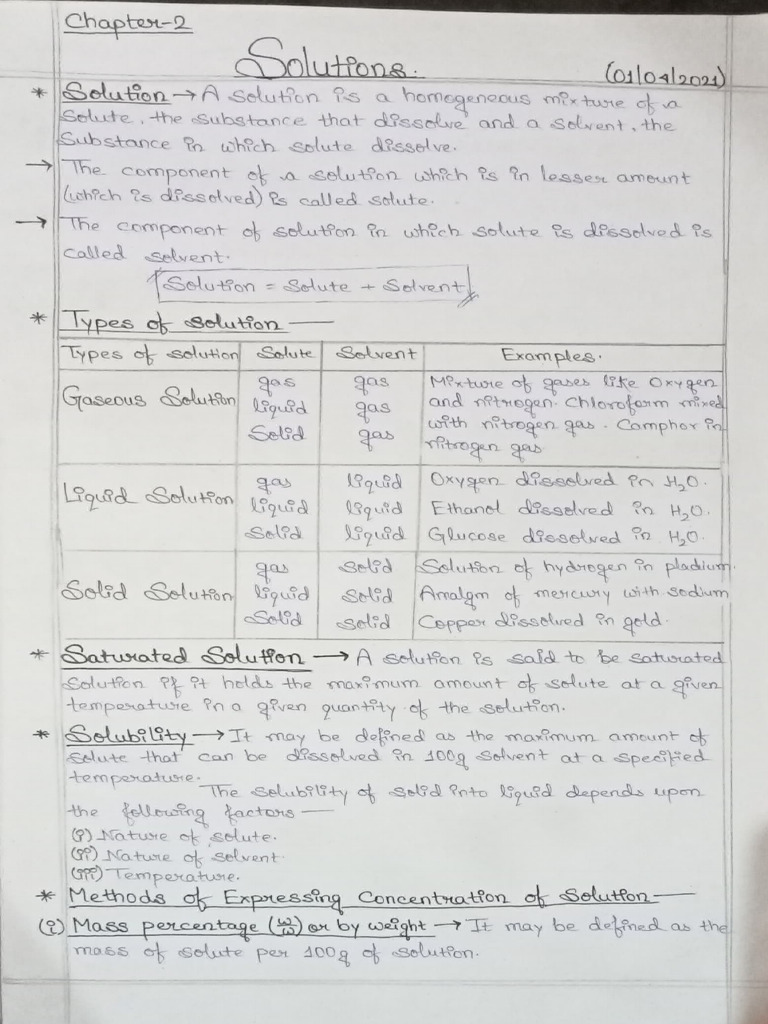 Chapter-2
Solutions.
(01/04/2021)
* Solution → A solution is a homogeneous mixture of a
solute, the substance that dissolve and a solvent, the
substance in which solute dissolve.
→ The component of a solution which is in lesser amount
(which is dissolved) is called solute.
→ The component of solution in which solute is dissolved is
called solvent.
Solution = Solute + Solvent
* Types of solution —
Types of solution Solute Solvent Examples.
gas gas Mixture of gases like Oxygen
Gaseous Solution liquid gas and nitrogen. Chloroform mixed
Solid gas with nitrogen gas. Camphor in
nitrogen gas
gas liquid Oxygen dissolved in H₂O.
Liquid Solution liquid liquid Ethanol dissolved in H₂O.
Solid liquid Glucose dissolved in H₂O.
gas solid Solution of hydrogen in pladium.
Solid Solution liquid solid Amalgm of mercury with sodium
Solid solid Copper dissolved in gold.
* Saturated Solution → A solution is said to be saturated
solution if it holds the maximum amount of solute at a given
temperature in a given quantity of the solution.
* Solubility → It may be defined as the maximum amount of
solute that can be dissolved in 100g solvent at a specified
temperature.
The solubility of solid into liquid depends upon
the following factors —
(i) Nature of solute.
(ii) Nature of solvent
(iii) Temperature.
* Methods of Expressing Concentration of Solution —
(i) Mass percentage (w/w) or by weight → It may be defined as the
mass of solute per 100g of solution.